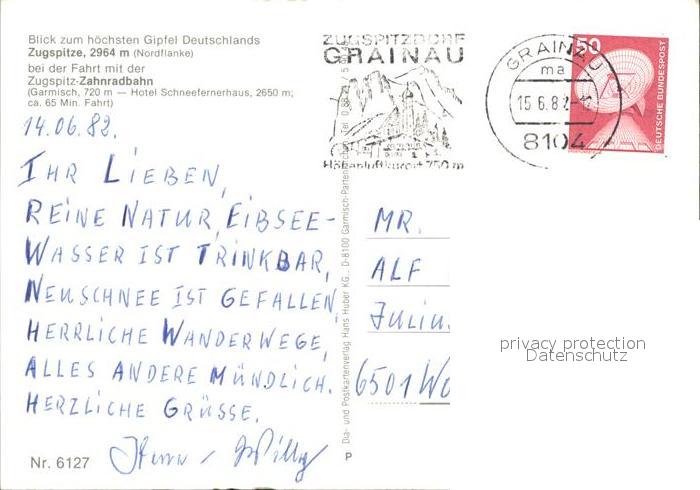 Blick zum höchsten Gipfel Deutschlands
Zugspitze, 2964 m (Nordflanke)
bei der Fahrt mit der
Zugspitz-Zahnradbahn
(Garmisch, 720 m — Hotel Schneefernerhaus, 2650 m;
ca. 65 Min. Fahrt)
ZUGSPITZDORF
GRAINAU
Höhenluftkurort 750 m
GRAINAU
ma
15.6.82
8104
50
DEUTSCHE BUNDESPOST
14.06.82.
IHR LIEBEN,
REINE NATUR, EIBSEE-
WASSER IST TRINKBAR,
NEUSCHNEE IST GEFALLEN,
HERRLICHE WANDERWEGE,
ALLES ANDERE MÜNDLICH.
HERZLICHE GRÜSSE.
Willy
Nr. 6127
Dia- und Postkartenverlag Hans Huber KG., D-8100 Garmisch-Partenkirchen
P
MR.
ALF
Juliu
6501 Wo
privacy protection
Datenschutz